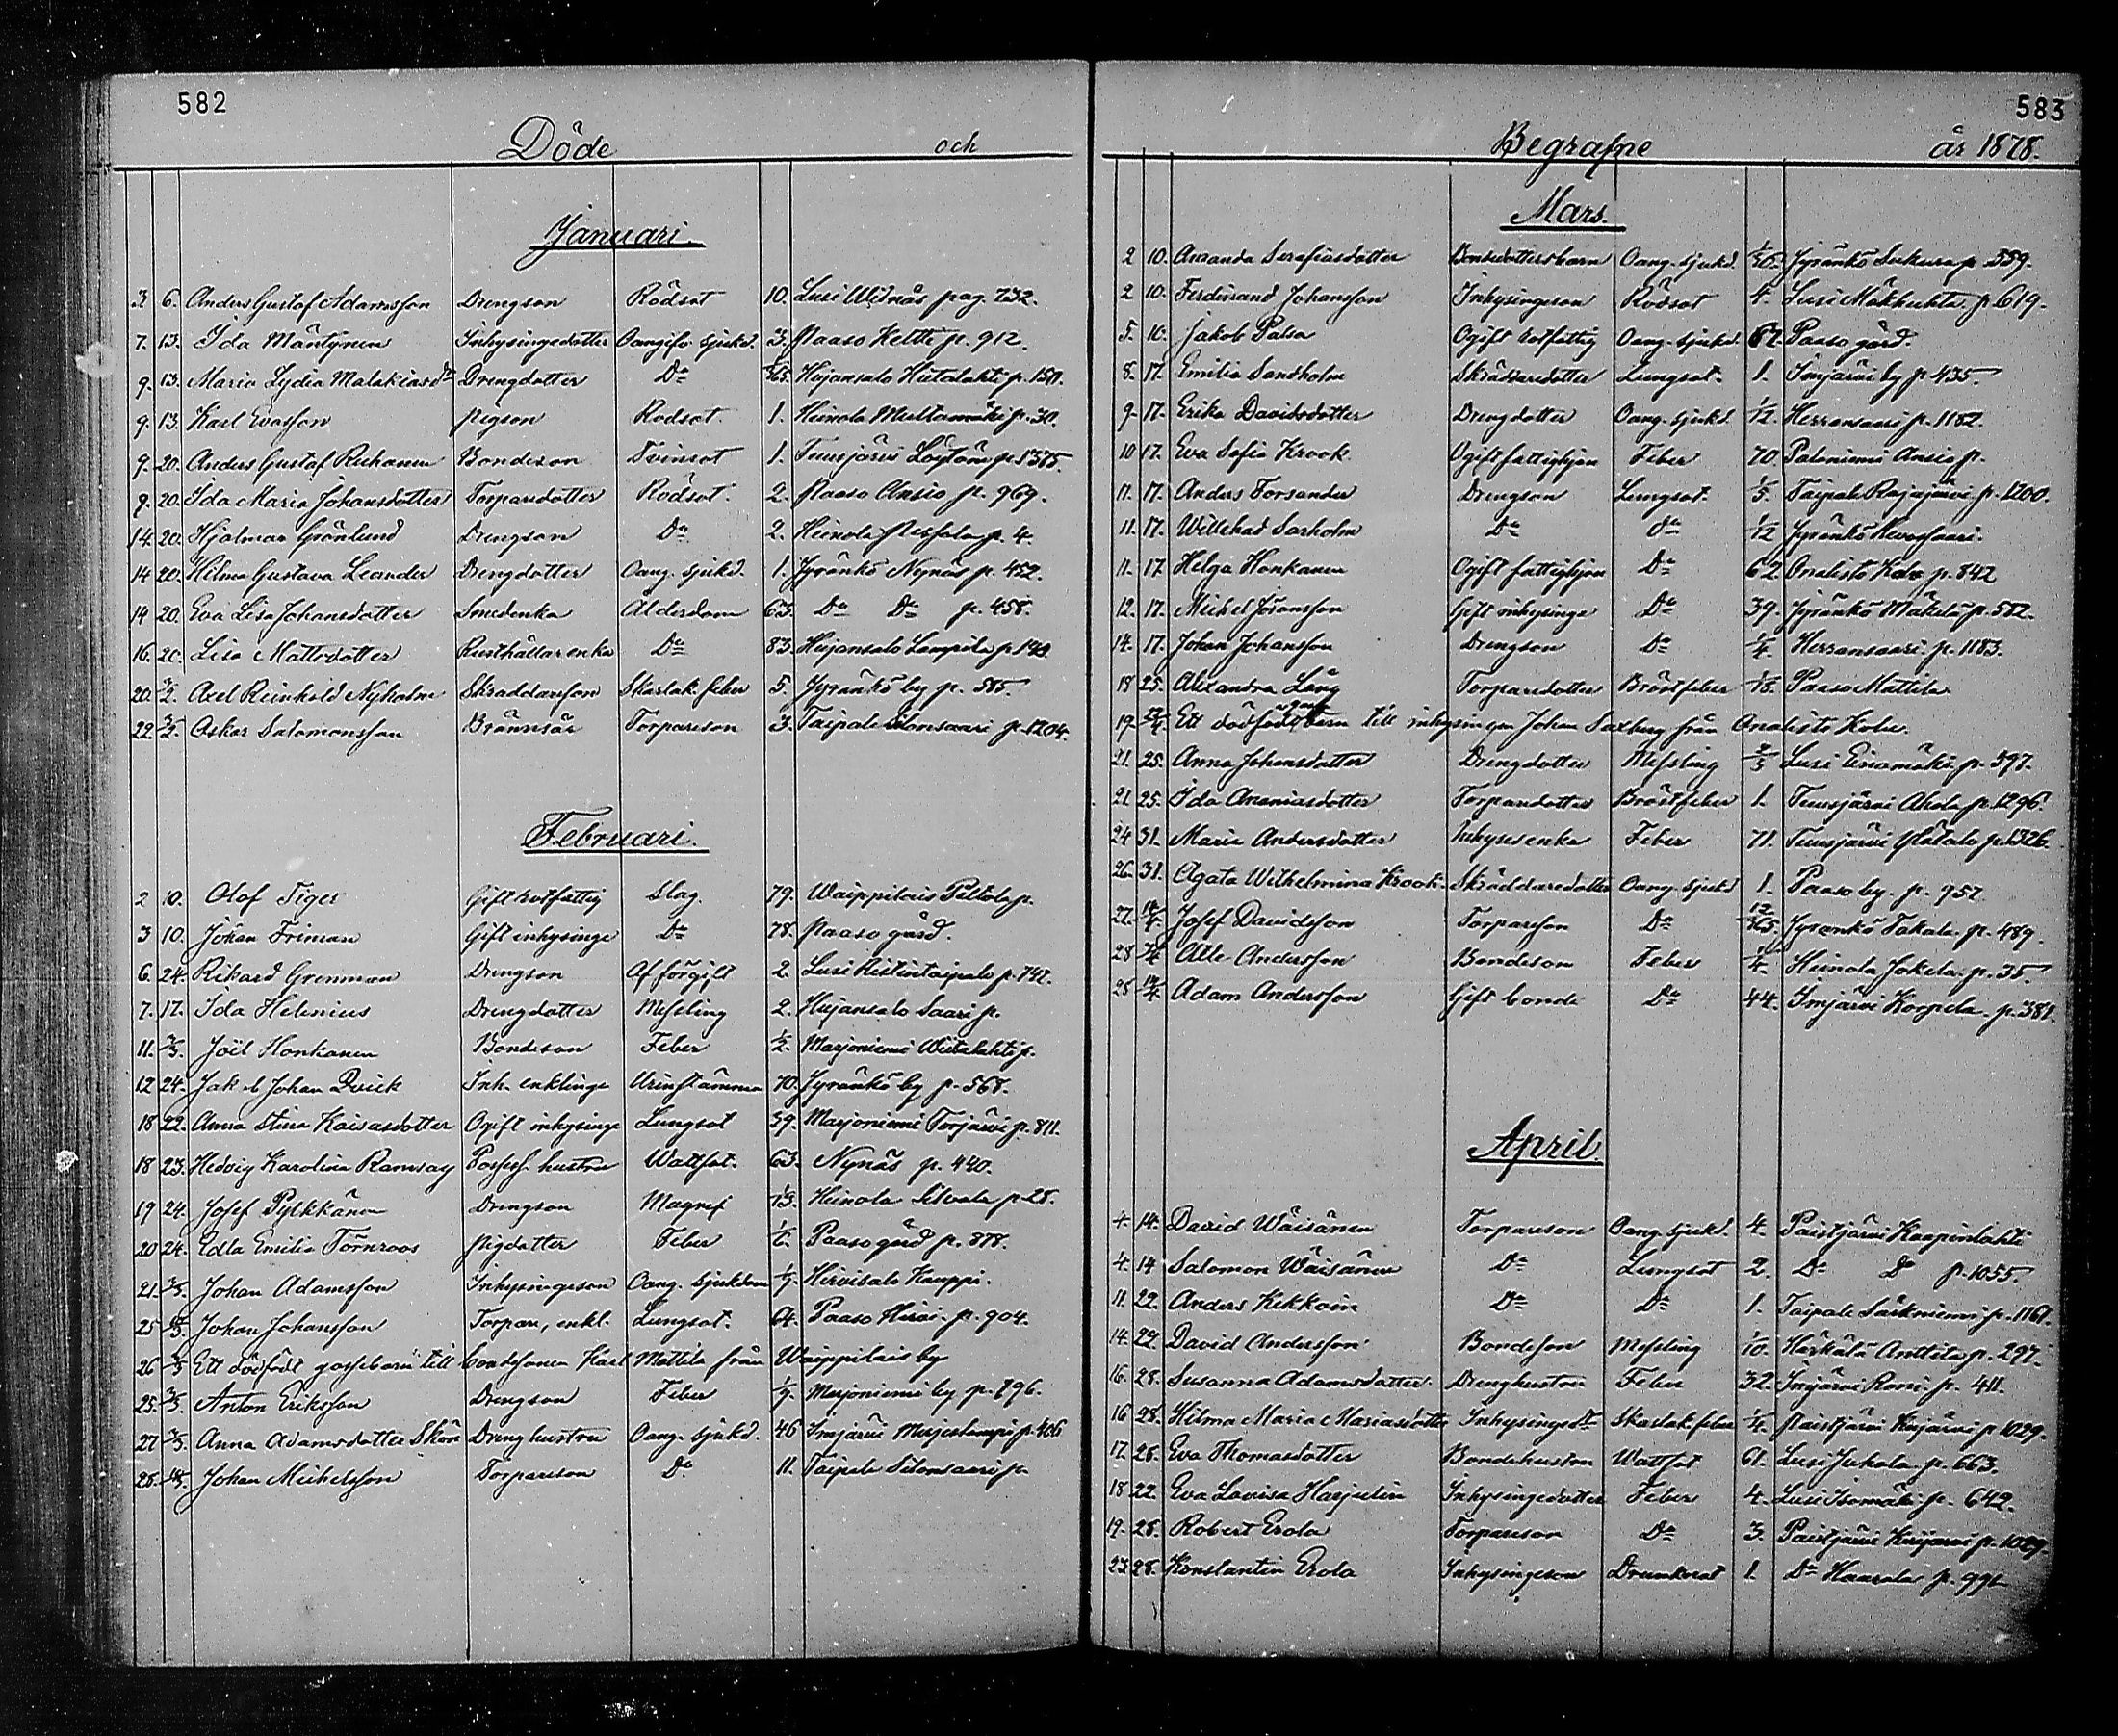 582
Döde och
Januari.
3 6. Anders Gustaf Adamsson Drengson Rödsot 10. Lusi Widnäs pag. 732.
7. 13. Ida Mäntynen Inhysingedotter Oangifv. sjukd. 3. Paaso Keltti p. 912.
9. 13. Maria Lydia Malakiasdr Drengdotter Do Hujansalo Hietalahti p. 150.
9. 13. Karl Evasson pigson Rödsot. 1. Heinola Multamäki p. 30.
9. 20. Anders Gustaf Ruhanen Bondeson Tvinsot 1. Tuusjärvi Löytöm p. 1375.
9. 20. Ida Maria Johansdotter Torparedotter Rödsot. 2. Paaso Ansio p. 969.
14. 20. Hjalmar Grönlund Drengson Do 2. Heinola p. 4.
14 20. Hilma Gustava Leander Drengdotter Oang. sjukd. 1. Jyränkö Nynäs p. 452.
14 20. Eva Lisa Johansdotter Smedenka Ålderdom 63. Do Do p. 458.
16. 20. Lisa Mattsdotter Rusthållarenka Do 83. Hujansalo Lampila p. 142
20. 3/2. Axel Reinhold Nyholm Skräddarsson Skarlak. feber 5. Jyränkö by p. 585.
22 3/2. Oskar Salomonsson Brännsår Torpareson 3. Taipale Silonsaari p. 1204.
Februari.
2 10. Olof Tiger Gift rotfattig Slag. 79. Waippilais Peltola p.
3 10. Johan Friman Gift inhysinge Do 78. Paaso gård.
6. 24. Rikard Grenman Drengson Af förgift 2. Lusi Ristintaipale p. 742.
7. 17. Ida Helenius Drengdotter Messling 2. Hujansalo Saari p.
11. 3/3. Joël Honkanen Bondeson Feber 1/2. Marjoniemi Wiitalahti p.
12 24. Jakob Johan Qvick Inh. enklinge Urinstämma 70. Jyränkö by p. 568.
18 22. Anna Stina Kaisasdotter Ogift inhysinge Lungsot 39. Marjoniemi Torjärvi p. 811.
18 23. Hedvig Karolina Ramsay Possess. hustru Wattsot. 63. Nynäs p. 440.
19 24. Josef Pylkkänen Drengson Magref Heinola Silvala p. 28.
20 24. Edla Emilia Törnroos Pigdotter Feber Paaso gård p. 878.
21. 3/3. Johan Adamsson Inhysingeson Oang. sjukdom Hirvisalo Kauppi.
25 Johan Johansson Torpare, enkl. Lungsot. 64. Paaso Hirvi. p. 904.
26 3/3 Ett dödfödt gossebarn till bondesonen Karl Mattila från Waippilais by
25. 3/3. Anton Eriksson Drengson Feber Marjoniemi by p. 796.
27 3/3. Anna Adamsdotter Skön Drenghustru Oang. sjukd. 46 Imjärvi p. 406
28. Johan Michelsson Torpareson Do 11. Taipale Silonsaari p.
583
Begrafne år 1878.
Mars.
2 10. Amanda Serafiasdotter Bondedottersbarn Oang. sjukd. Jyränkö Sukura p. 559.
2 10. Ferdinand Johansson Inhysingeson Rödsot 4. Lusi Mäkhuhta p. 619.
5. 10. Jakob Palsa Ogift rotfattig Oang. sjukd. 67. Paaso gård.
8. 17. Emilia Sandholm Skräddaredotter Lungsot. 1. Imjärvi by p. 435.
9. 17. Erika Davidsdotter Drengdotter Oang. sjukd. 1/12. Herransaari p. 1182.
10 17. Eva Sofia Krook. Ogift fattighjon Feber 70. Paloniemi Ansio p.
11. 17. Anders Forsander Drengson Lungsot. 1/5. Taipale Rajajärvi p. 1200.
11. 17. Willehad Saxholm Do do 1/12 Jyränkö Hevossaari.
11. 17 Helga Honkanen Ogift fattighjon Do 62 Onalisto Kolu p. 842
12. 17. Michel Göransson Gift inhysinge Do 39. Jyränkö Mäkelä p. 582.
14. 17. Johan Johansson Drengson Do 1/4. Herransaari. p. 1183.
18 25. Alexandra Lång Torparedotter Bröstfeber Paaso Mattila
19. Ett dödfödt gossebarn till inhysingen Johan Saxberg från Onalisto Kolu.
21. 25. Anna Johansdotter Drengdotter Messling Lusi Einamäki p. 597.
21 25. Ida Ananiasdotter Torparedotter Bröstfeber 1. Tuusjärvi Ahola p. 1296.
24 31. Maria Andersdotter Inhysesenka Feber 71. Tuusjärvi Ylätalo p. 1326
26. 31. Agata Wilhelmina Krook. Skräddaredotter Oang. sjukd 1. Paaso by. p. 957
27. 14/4. Josef Davidsson Torpareson Do 12/365. Jyränkö Takala p. 489.
28 Alle Andersson Bondeson Feber 1/4. Heinola Jokela p. 35.
28. 14/4. Adam Andersson Gift bonde Do 44. Imjärvi Korpela. p. 381.
April.
4. 14. David Wäisänen Torpareson Oang. sjukd. 4. Paistjärvi Haapinlahti
4. 14 Salomon Wäisänen Do Lungsot 2. Do Do p. 1055.
11. 22. Anders Kekkoin Do Do 1. Taipale Särkniemi p. 1161.
14. 22. David Andersson Bondeson Messling 1/10. Härkälä Anttila p. 297.
16. 28. Susanna Adamsdotter. Drenghustru Feber 32. Imjärvi Roni p. 411.
16 28. Hilma Maria Mariasdotter Inhysingedr Skarlak. feber 1/4. Paistjärvi Kuijärvi p. 1029.
17. 28. Eva Thomasdotter Bondehustru Wattsot 61. Lusi Jukola p. 663.
18 22. Eva Lovisa Harjulin Inhysingedotter Feber 4. Lusi Isomäki p. 642.
19. 28. Robert Erola Torpareson Do 3. Paistjärvi Kuijärvi p. 1029.
23 28. Konstantin Erola Inhysingeson Drunknat 1. Do Haarala p. 991